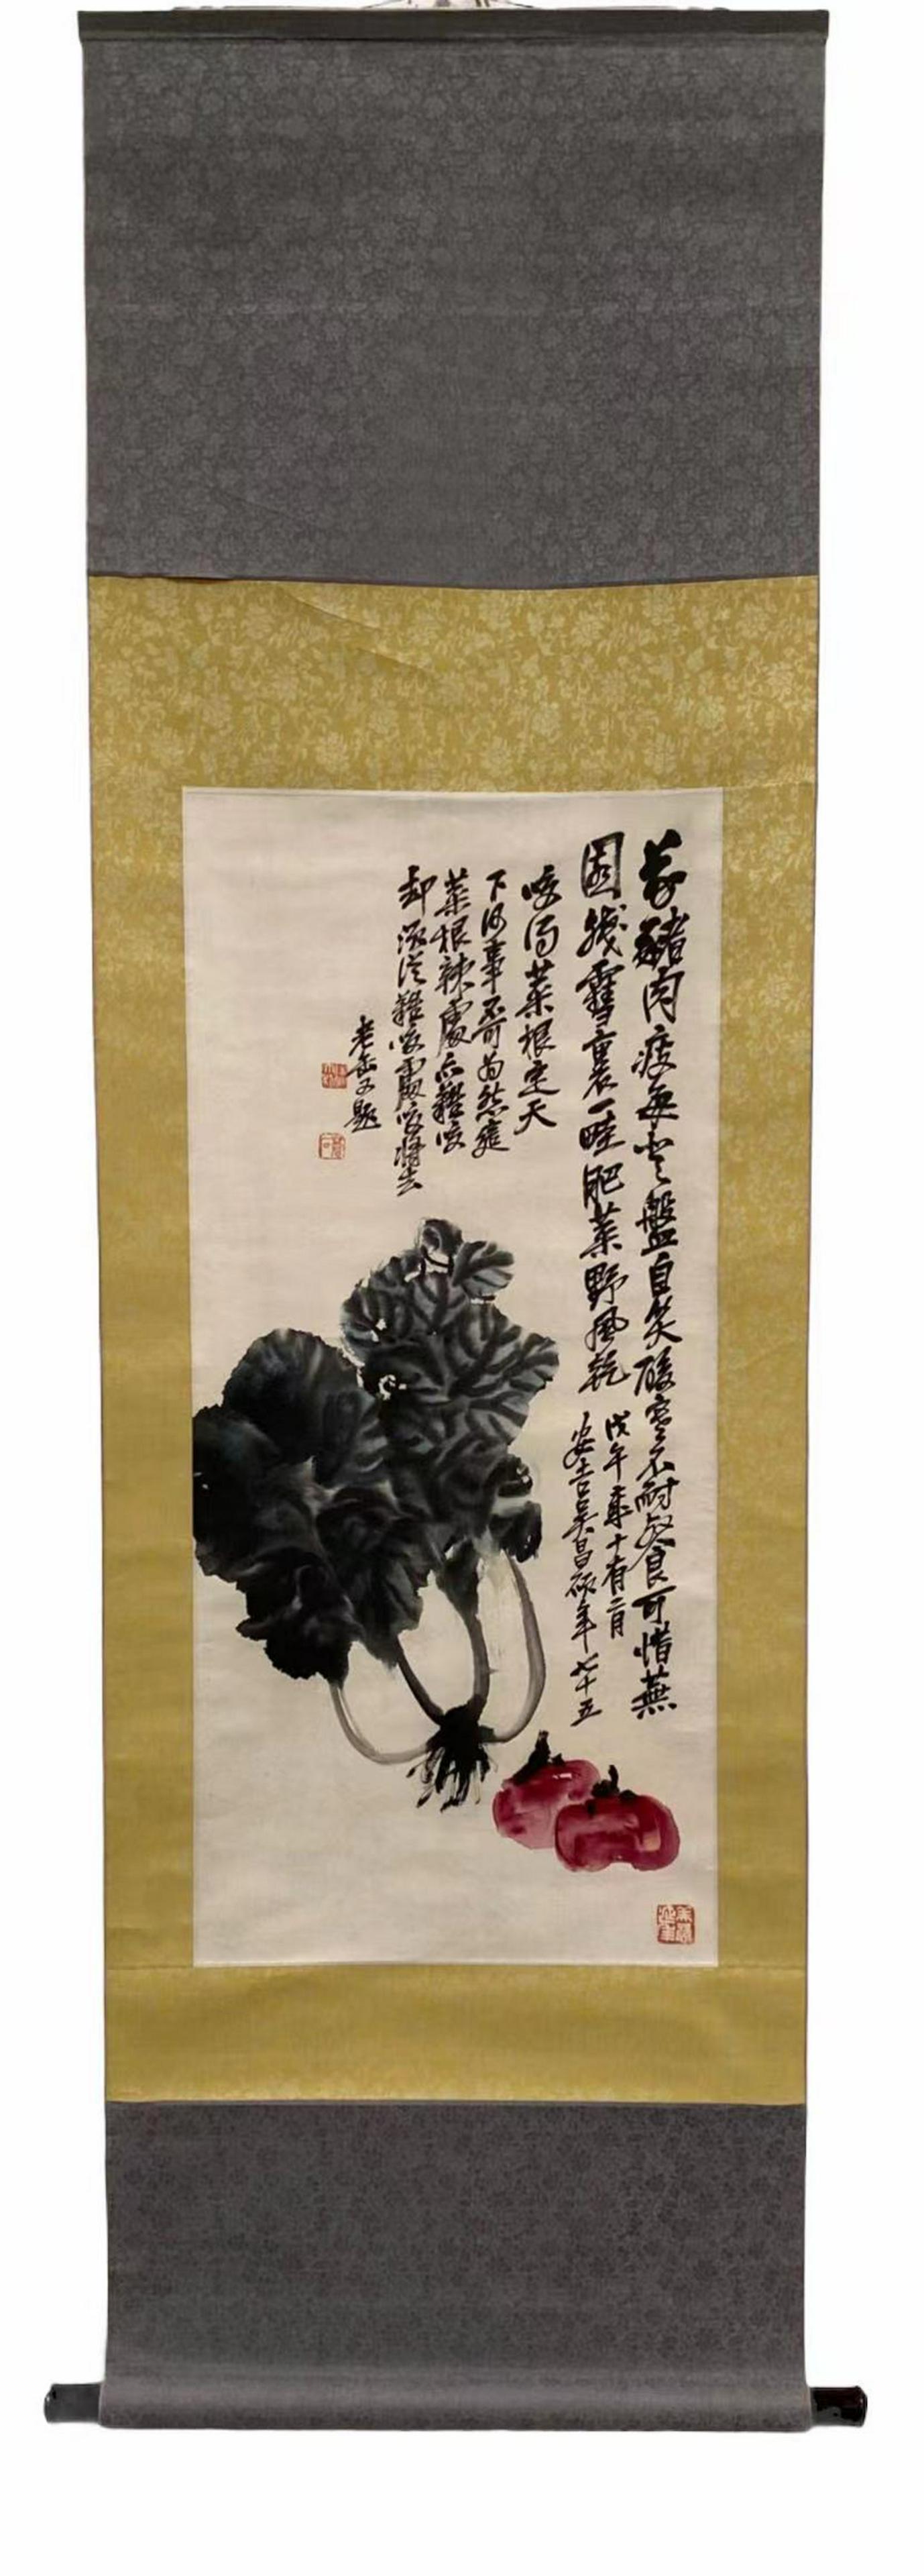 豢豬肉瘦每登盤自笑酸寒不耐餐可惜蕪
園殘雪裏一畦肥菜野風乾
戊午十有二月
安吉吳昌碩年七十五
咬得菜根定天
下何事不可為然這
菜根辣處亦難咬
却須從難咬處咬將去
老缶又題